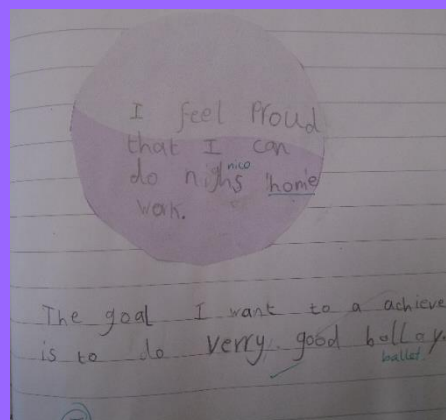 I feel Proud
that I can
nice
do nighs home
wak.
The goal I want to a achieve
is to do verry good ballay.
ballet.